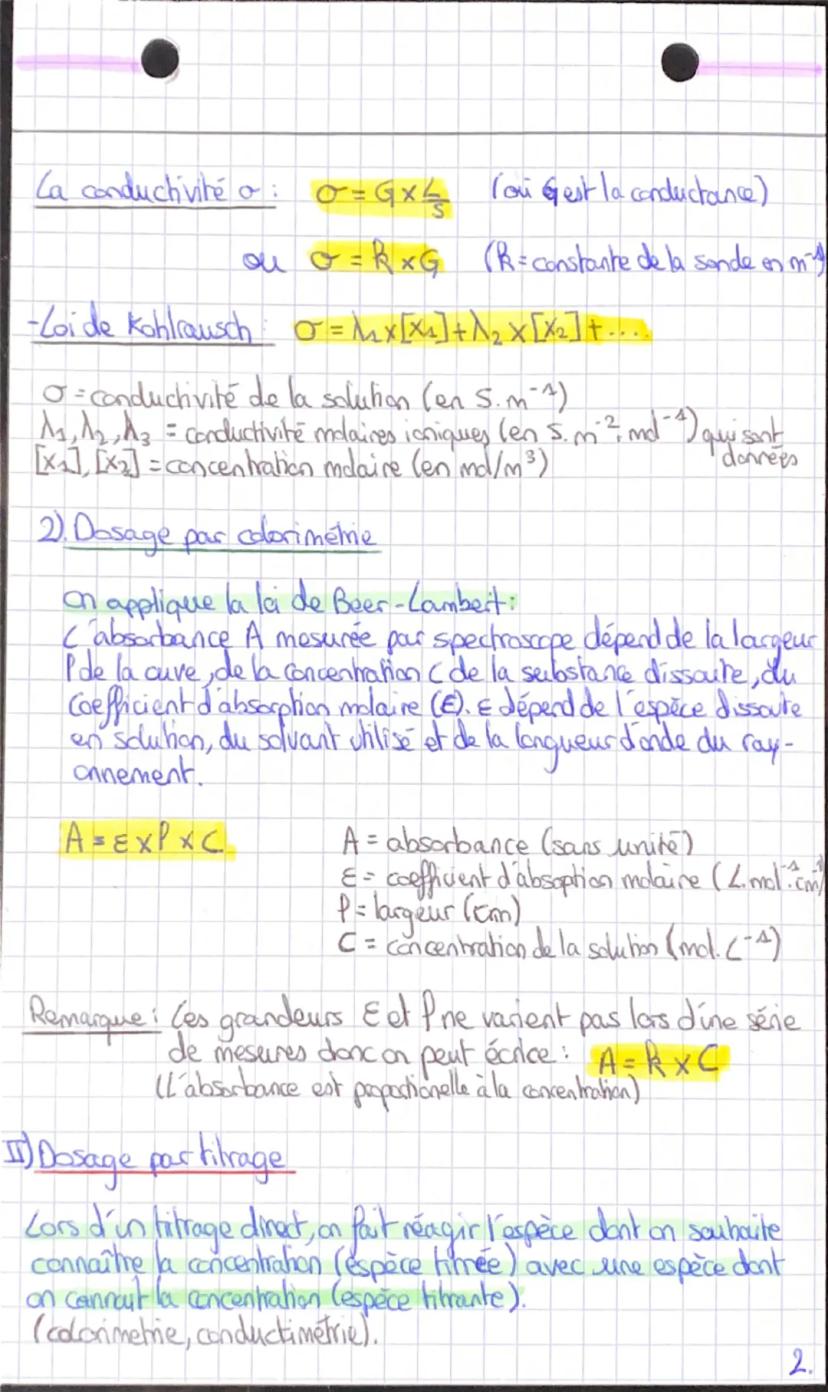 La conductivité σ : σ = G × L/S (où G est la conductance)
ou σ = k × G (k = constante de la sonde en m⁻¹)
-Loi de Kohlrausch : σ = λ₁ × [X₁] + λ₂ × [X₂] + ....
σ = conductivité de la solution (en S.m⁻¹)
λ₁, λ₂, λ₃ = conductivité molaires ioniques (en S.m⁻².mol⁻¹) qui sont données
[X₁], [X₂] = concentration molaire (en mol/m³)
2) Dosage par colorimétrie
On applique la loi de Beer-Lambert :
L'absorbance A mesurée par spectroscope dépend de la largeur
l de la cuve, de la concentration C de la substance dissoute, du
coefficient d'absorption molaire (ε). ε dépend de l'espèce dissoute
en solution, du solvant utilisé et de la longueur d'onde du ray-
onnement.
A = ε × l × C A = absorbance (sans unité)
ε = coefficient d'absoption molaire (L.mol⁻¹.cm⁻¹)
l = largeur (cm)
C = concentration de la solution (mol.L⁻¹)
Remarque : Les grandeurs ε et l ne varient pas lors d'une série
de mesures donc on peut écrire : A = k × C
(L'absorbance est proportionelle à la concentration)
II) Dosage par titrage
Lors d'un titrage direct, on fait réagir l'espèce dont on souhaite
connaître la concentration (espèce titrée) avec une espèce dont
on connaît la concentration (espèce titrante).
(colorimetrie, conductimétrie).
2.